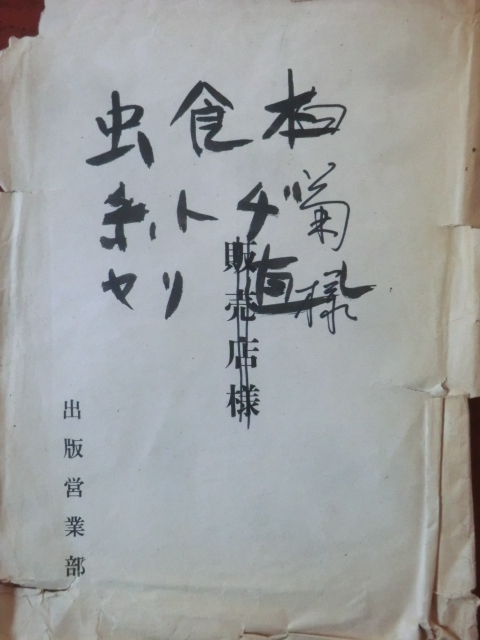 虫食本
糸トヂ
ヤリ直
菊様
販売店様
出版営業部